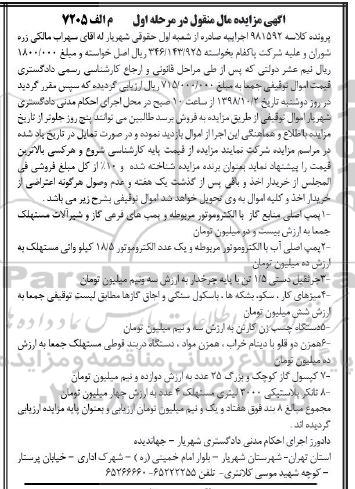 آگهی مزایده مال منقول در مرحله اول م الف ۷۲۰۵
پرونده کلاسه ۹۸۱۵۹۲ اجراییه صادره از شعبه اول حقوقی شهریار له اقای سهراب مالکی زره
شوران و علیه شرکت باکفام بخواسته ۳۴۶/۱۴۳/۹۲۵ ریال اصل خواسته و مبلغ ۱۸۰۰/۰۰۰
ریال نیم عشر دولتی که پس از طی مراحل قانونی و ارجاع کارشناسی رسمی دادگستری
قیمت اموال توقیفی جمعا به مبلغ ۷۱۵/۰۰۰/۰۰۰ ریال ارزیابی گردیده که سپس مقرر گردید
در روز دوشنبه تاریخ ۱۳۹۸/۱۰/۲ از ساعت ۱۰ صبح در محل اجرای احکام مدنی دادگستری
شهریار اموال توقیفی از طریق مزایده به فروش برسد طالبین می توانند پنج روز جلوتر از تاریخ
مزایده با اطلاع و هماهنگی این اجرا از اموال بازدید نموده و در صورت تمایل در تاریخ یاد شده
در مراسم مزایده شرکت نمایند مزایده از قیمت پایه کارشناسی شروع و هرکسی بالاترین
قیمت را پیشنهاد نماید بعنوان برنده مزایده شناخته شده و ۱۰٪ از کل مبلغ فروشی فی
المجلس از خریدار اخذ و باقی پس از گذشت یک هفته و عدم وصول هرگونه اعتراضی از
خریدار اخذ و کلیه اموال به وی تحویل خواهد شد اموال توقیفی بشرح زیر می باشد.
۱-پمپ اصلی منابع گاز با الکتروموتور مربوطه و پمپ های فرعی گاز و شیرآلات مستهلک
جمعا به ارزش بیست و دو میلیون تومان
۲-پمپ اصلی آب با الکتروموتور مربوطه و یک عدد الکتروموتور ۱۸/۵ کیلو واتی مستهلک به
ارزش ده میلیون تومان
۳-جرثقیل دستی ۱/۵ تن با پایه چرخدار به ارزش سه ونیم میلیون تومان
۴-میزهای کار ، سکو، بشکه ها ، باسکول سنگی و اجاق گازها مطابق لیست توقیفی جمعا به
ارزش شش میلیون تومان
۵-دستگاه چسب زن کارتن به ارزش سه و نیم میلیون تومان
۶-همزن دو قلو با دینام خراب ، همزن مواد ، دستگاه دربند قوطی مستهلک جمعا به ارزش
ده میلیون تومان
۷- کپسول گاز کوچک و بزرگ ۲۵ عدد به ارزش دوازده و نیم میلیون تومان
۸- تانکر پلاستیکی ۳۰۰۰ لیتری مستهلک ۴ عدد به ارزش چهار میلیون تومان
مجموع مبالغ ۸ بند فوق هفتاد و یک و نیم میلیون تومان ارزیابی و بعنوان پایه مزایده ارزیابی
گردیده اند.
دادورز اجرای احکام مدنی دادگستری شهریار - جهاندیده
استان تهران- شهرستان شهریار – بلوار امام خمینی (ره) – شهرک اداری – خیابان پرستار
– کوچه شهید موسی کلانتری- تلفن ۶۵۲۲۲۲۵۵- ۶۵۲۶۶۶۶۰